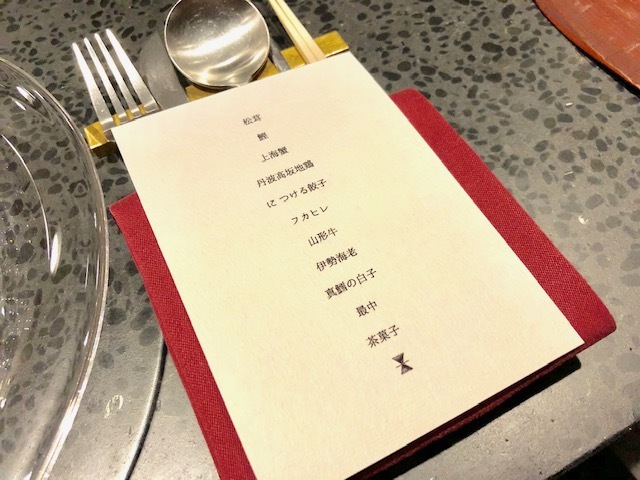 松茸
鰹
上海蟹
丹波高坂地鶏
につける餃子
フカヒレ
山形牛
伊勢海老
真鱈の白子
最中
茶菓子